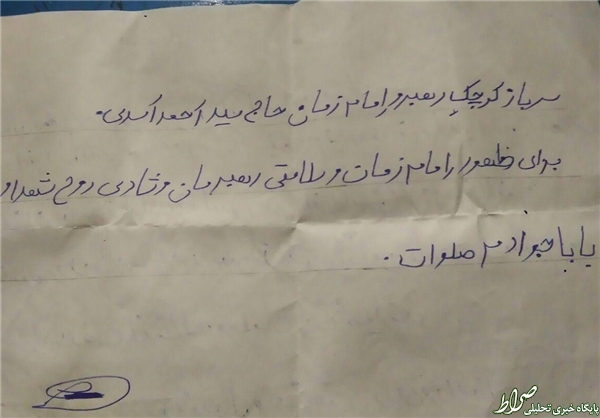 سرباز کوچک رهبر و امام زمان حاج سید احمد اسدی.
برای ظهور امام زمان و سلامتی رهبرمان و شادی روح شهدا و
بابا جوادم صلوات.
صراط
پایگاه خبری تحلیلی